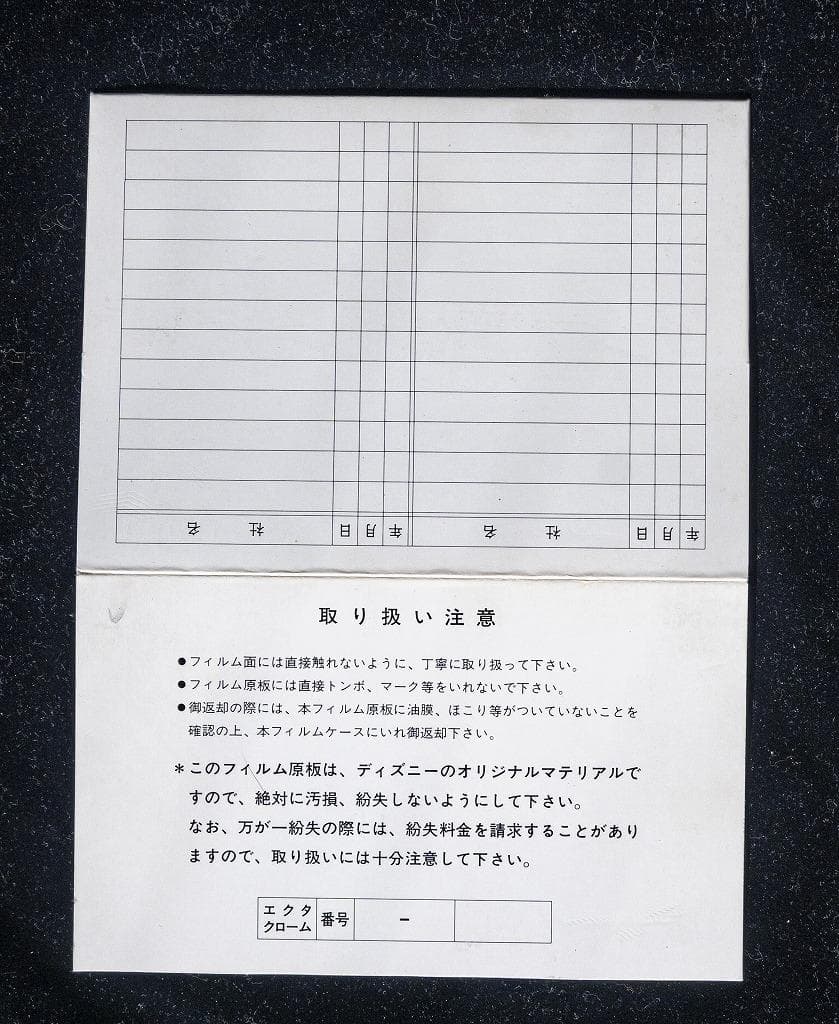 年 月 日 社 名 年 月 日 社 名
取り扱い注意
●フィルム面には直接触れないように、丁寧に取り扱って下さい。
●フィルム原板には直接トンボ、マーク等をいれないで下さい。
●御返却の際には、本フィルム原板に油膜、ほこり等がついていないことを
確認の上、本フィルムケースにいれ御返却下さい。
＊このフィルム原板は、ディズニーのオリジナルマテリアルで
すので、絶対に汚損、紛失しないようにして下さい。
なお、万が一紛失の際には、紛失料金を請求することがあり
ますので、取り扱いには十分注意して下さい。
エクタ
クローム 番号 －